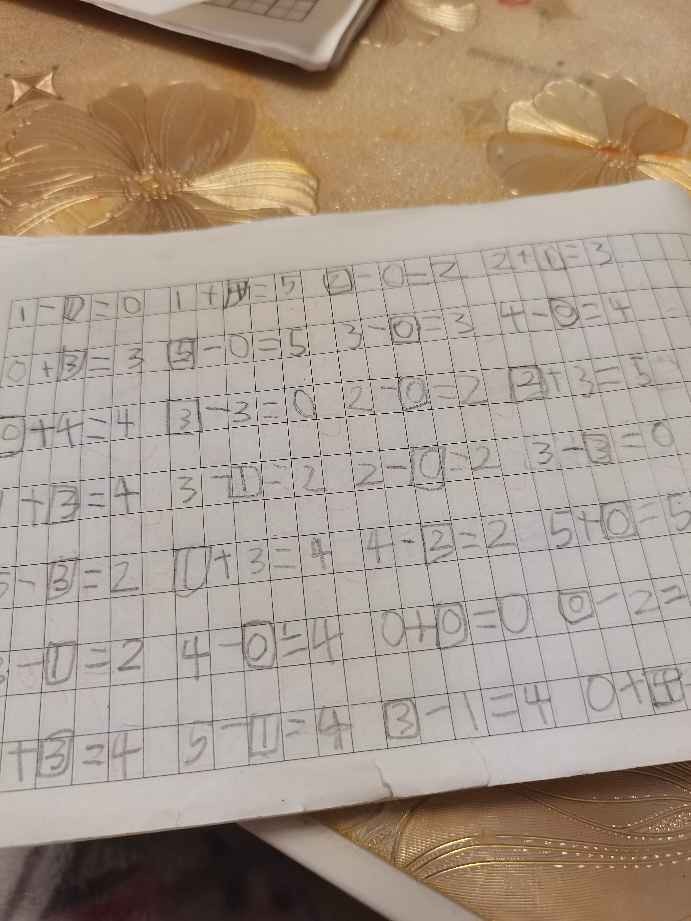 1-[1]=0 1+[4]=5 [2]-0=2 2+[1]=3
0+[3]=3 [5]-0=5 3-[0]=3 4-[0]=4
[0]+4=4 [3]-3=0 2-[0]=2 [2]+3=5
1+[3]=4 3-[1]=2 2-[0]=2 3-[3]=0
5-[3]=2 [1]+3=4 4-[2]=2 5+[0]=5
3-[1]=2 4-[0]=4 0+[0]=0 [0]-2=
+[3]=4 5-[1]=4 [3]-1=4 0+[4]